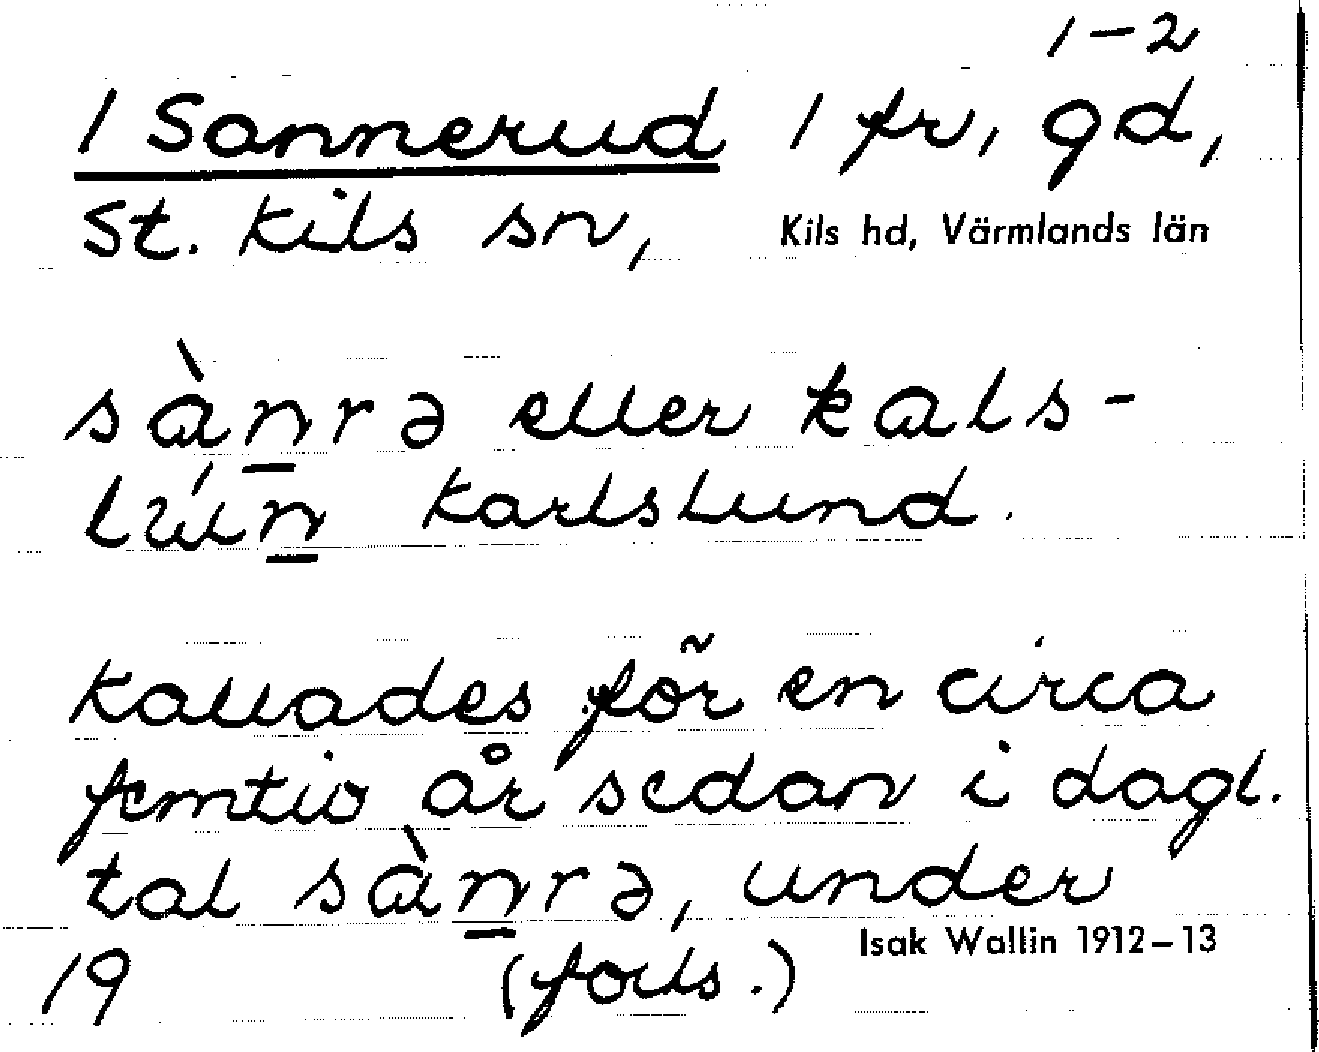 1-2
1 Sannerud 1 fr, gd,
St. Kils sn, Kils hd, Värmlands län
sàn̲rə eller kals-
lún̲ Karlslund.
Kallades för en circa
femtio år sedan i dagl.
tal sàn̲rə, under
Isak Wallin 1912-13
19 (forts.)